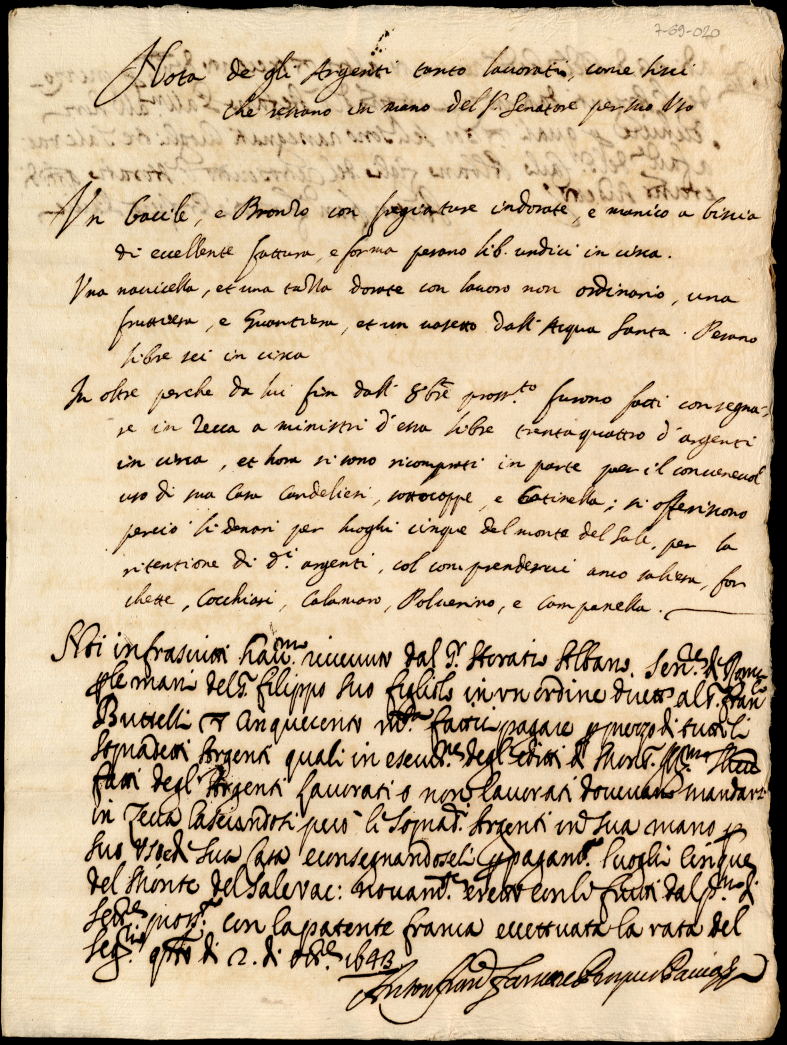 7-69-020
Nota de gli Argenti tanto lavorati, come lisci
che restano in mano del S.r Senatore per suo Uso
Un bacile, e Bronzo con fregiature indorate, e manico a biscia
di eccellente fattura, e forma pesano lib. undici in circa.
Una navicella, et una tazza dorate con lavoro non ordinario, una
fruttiera, e Guantiera, et un vasetto dall' Acqua Santa. Pesano
libre sei in circa
In oltre perche da lui fin dall' 8bre pross.to furono fatti consegna-
re in Zecca a ministri d'essa libre trentaquattro d'argenti
in circa, et hora si sono ricomprati in parte per il convenevol
uso di sua Casa Candelieri, sottocoppe, e Catinella; si offeriscono
percio li denari per luoghi cinque del monte del Sale, per la
ritentione di d.i argenti, col comprendervi anco saliera, for
chette, Cocchiari, Calamaro, Polverino, e Campanella.
Noi infrascritti hav.mo ricevuto dal S.r Horatio Albano Sen.re di Roma
p le mani del S. Filippo suo figliolo in un ordine diretto al S. Fran.co
Buttelli cinquecento m.ta fattici pagare p prezzo di tutti li
sopradetti Argenti quali in esecut.ne degl'editti di Mons.r Ill.mo
fatti degl'Argenti lavorati o non lavorati dovevano mandarsi
in Zecca lasciandosi però li soprad.i Argenti in sua mano p
suo uso e di sua Casa e consegnandoseli p pagam.to luoghi cinque
del Monte del Sale vac: novam.te eretto con li frutti dal p.mo di
Sett.re pross.o con la patente franca eccettuata la rata del
q.sto di 2. di 8bre 1643